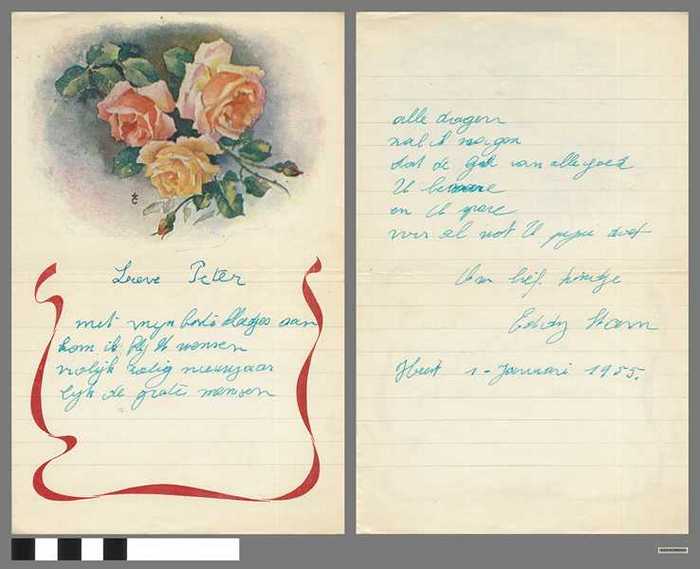 Lieve Peter
met mijn beste kleedjes aan
kom ik bij U wensen
vrolijk zalig nieuwjaar
lijk de grote mensen
alle dagen
zal ik vragen
dat de God van alle goed
U beware
en U spare
voor al wat U pijne doet
Uw lief kindje
Eddy
Heist 1-Januari 1955.